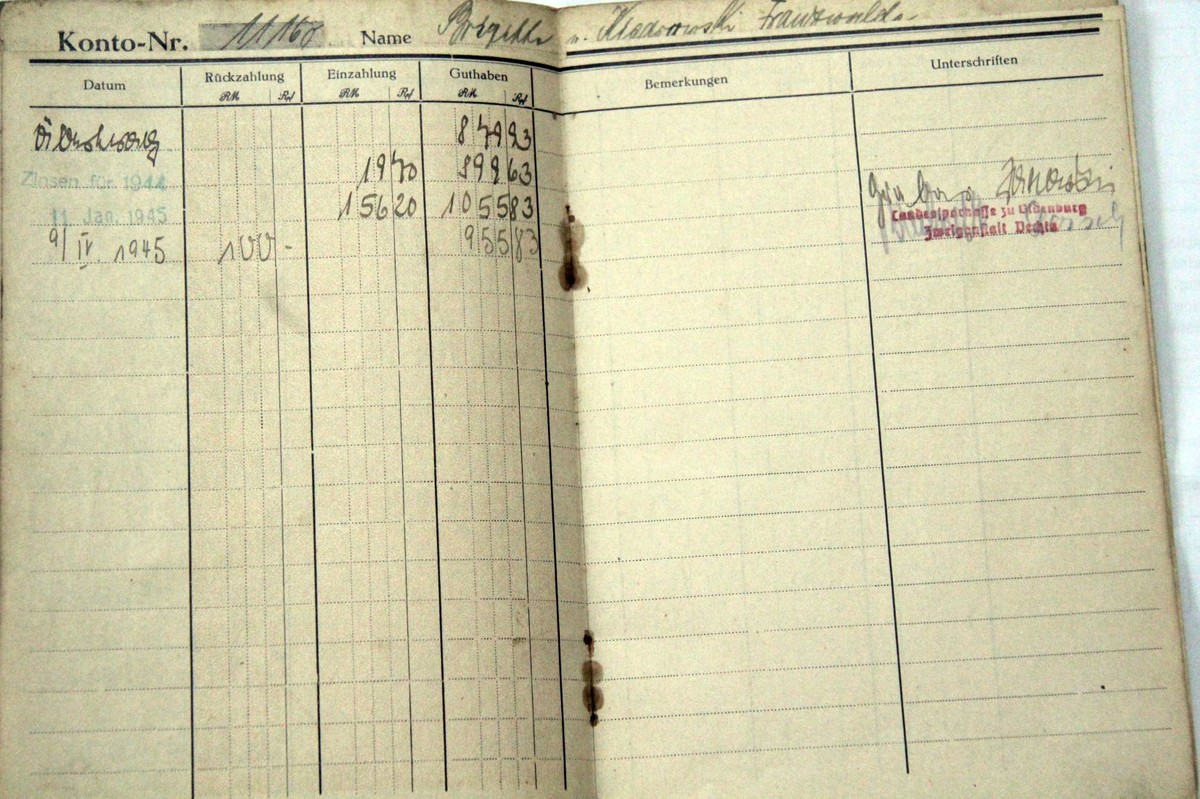 Konto-Nr. 11160 Name Brigitte v. Franzwalde
Datum Rückzahlung Einzahlung Guthaben Bemerkungen Unterschriften
RM Rpf RM Rpf RM Rpf
879 93
Zinsen für 1944 19 70 899 63
11. Jan. 1945 156 20 1055 83
9/IV. 1945 100 - 955 83
Landessparkasse zu Oldenburg
Zweiganstalt Vechta